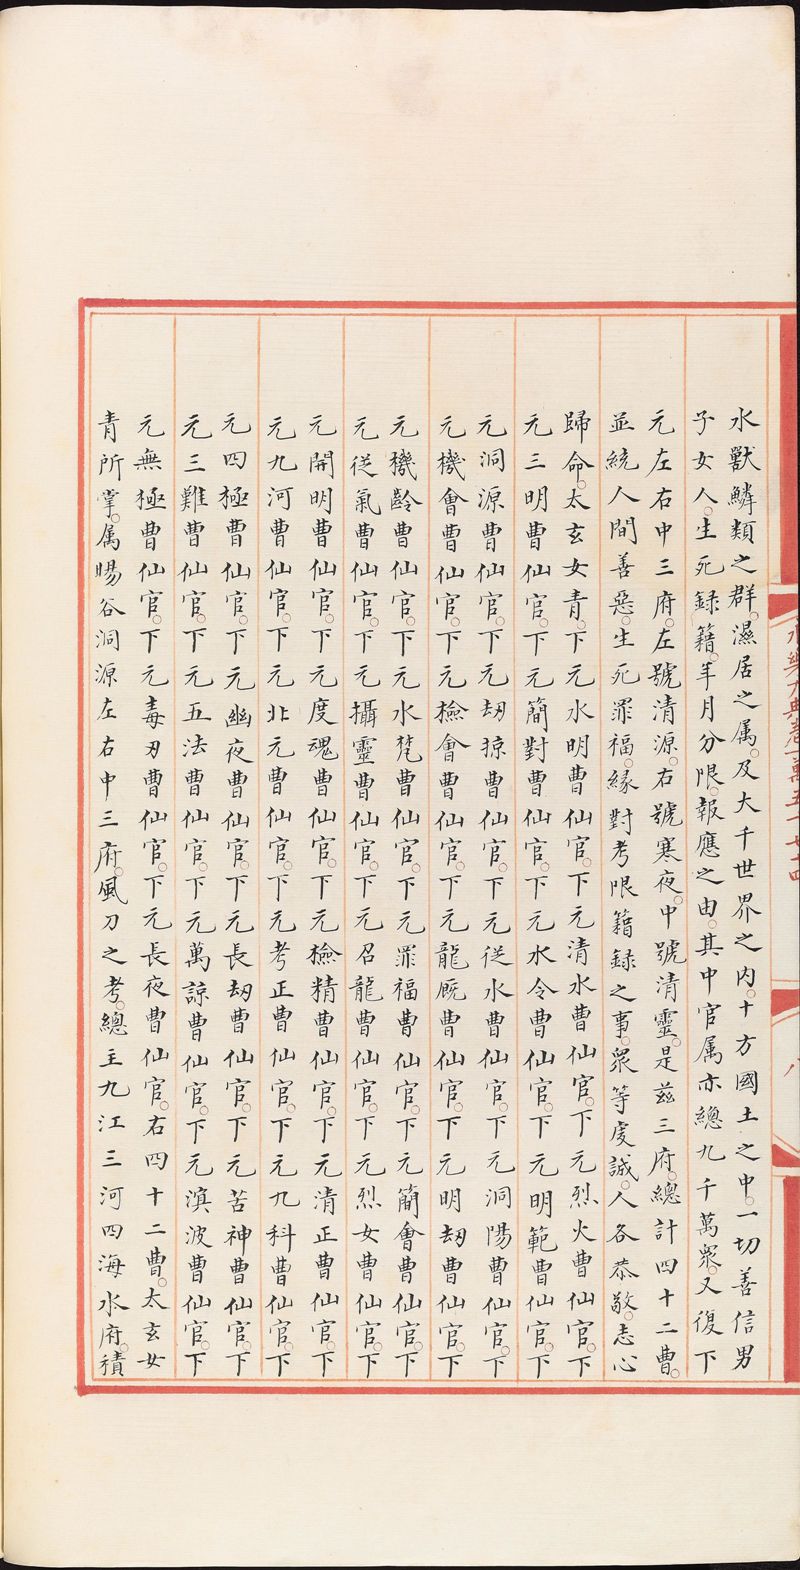 水獸鱗類之群。濕居之属。及大千世界之內。十方國土之中。一切善信男
子女人。生死録籍。年月分限。報應之由。其中官属亦總九千萬衆。又復下
元左右中三府。左號清源。右號寒夜。中號清靈。是茲三府。總計四十二曹。
並統人間善惡。生死罪福。緣對考限籍録之事。衆等虔誠。人各恭敬。志心
歸命。太玄女青。下元水明曹仙官。下元清水曹仙官。下元烈火曹仙官。下
元三明曹仙官。下元簡對曹仙官。下元水令曹仙官。下元明範曹仙官。下
元洞源曹仙官。下元刼掠曹仙官。下元從水曹仙官。下元洞陽曹仙官。下
元機會曹仙官。下元檢會曹仙官。下元龍厩曹仙官。下元明刼曹仙官。下
元機齡曹仙官。下元水梵曹仙官。下元罪福曹仙官。下元簡會曹仙官。下
元従氣曹仙官。下元攝靈曹仙官。下元召龍曹仙官。下元烈女曹仙官。下
元開明曹仙官。下元度魂曹仙官。下元檢精曹仙官。下元清正曹仙官。下
元九河曹仙官。下元北元曹仙官。下元考正曹仙官。下元九科曹仙官。下
元四極曹仙官。下元幽夜曹仙官。下元長刼曹仙官。下元苦神曹仙官。下
元三難曹仙官。下元五法曹仙官。下元萬諒曹仙官。下元溟波曹仙官。下
元無極曹仙官。下元毒刃曹仙官。下元長夜曹仙官。右四十二曹。太玄女
青所掌。属暘谷洞源左右中三府。風刀之考。總主九江三河四海水府。積